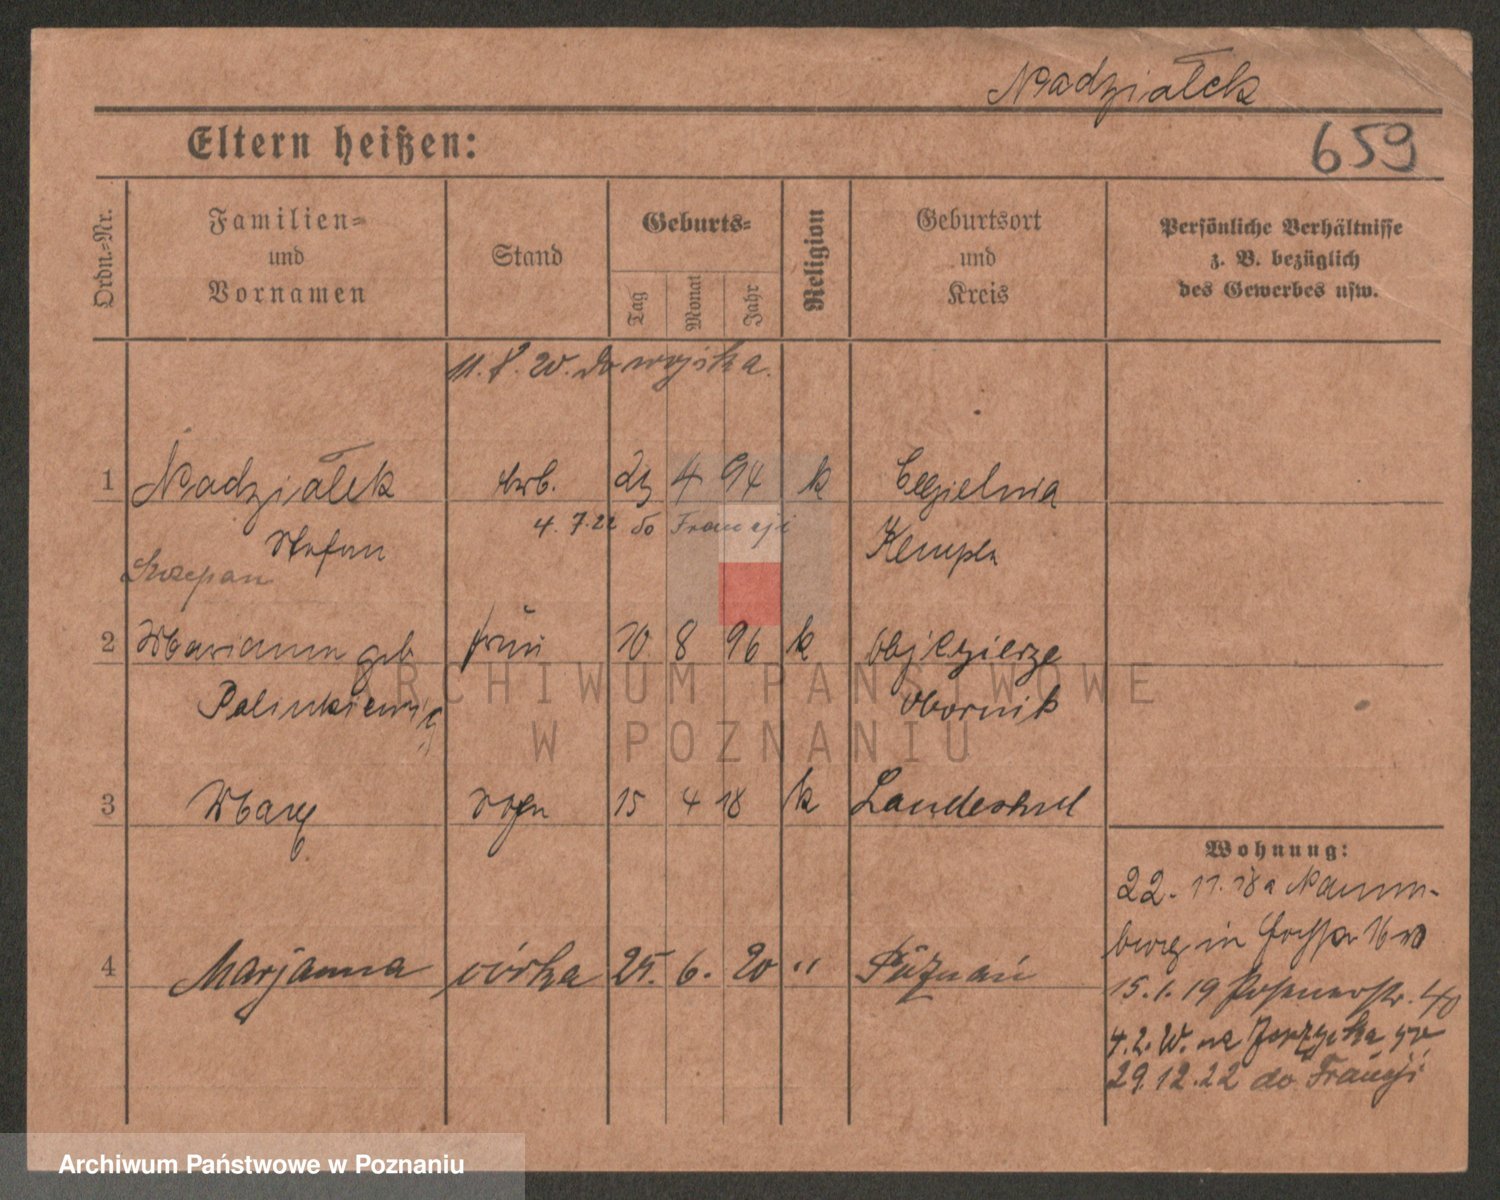 Nadziałek
659
Eltern heißen:
Ordn.-Nr.
Familien-
und
Vornamen
Stand
Geburts-
Tag
Monat
Jahr
Religion
Geburtsort
und
Kreis
Persönliche Verhältnisse
z. B. bezüglich
des Gewerbes usw.
11. 8. 20. do wojska.
1 Nadziałek Arb. 23 4 94 k Cegielnia
4.7.22 do Francji
Stefan Kempen
Szczepan
2 Mariann geb 10 8 96 k Objezierze
Palinkiewicz Obornik
3 Marg 15 4 18 k Landeshut
4 Marjanna córka 25. 6. 20 " Poznań
Wohnung:
22. 11. 18 a Naum-
burg in
15.1.19 Posenerstr. 40
4.2. 20. na
29.12.22 do Francji
ARCHIWUM PAŃSTWOWE
W POZNANIU
Archiwum Państwowe w Poznaniu